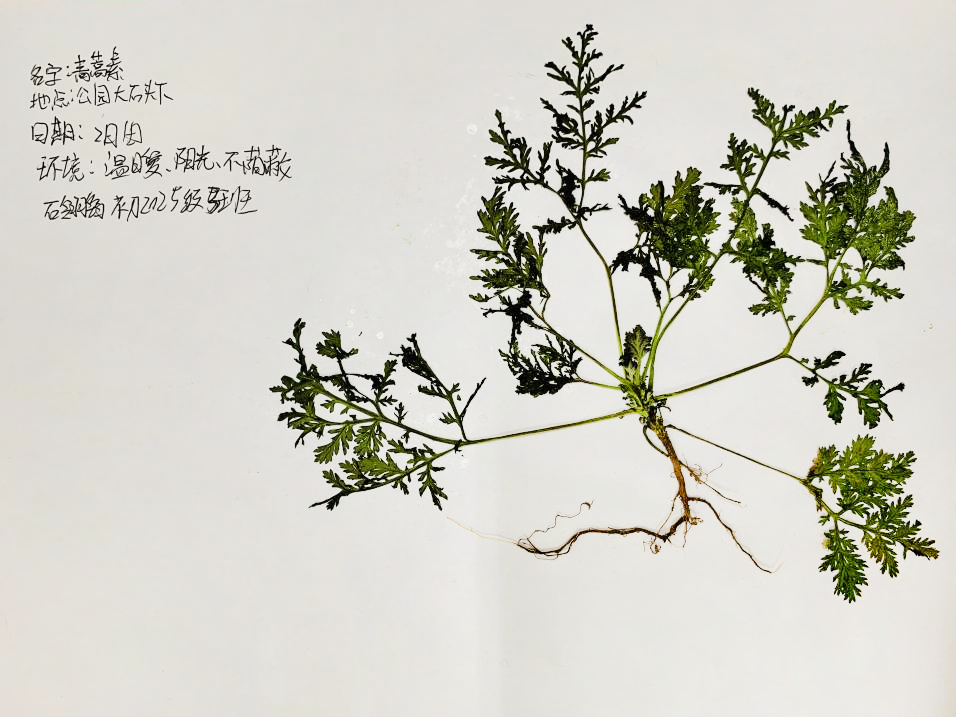 名字:青蒿素
地点:公园大石头下
日期:2月
环境:温暖、阳光、不荫蔽
初2025级 班